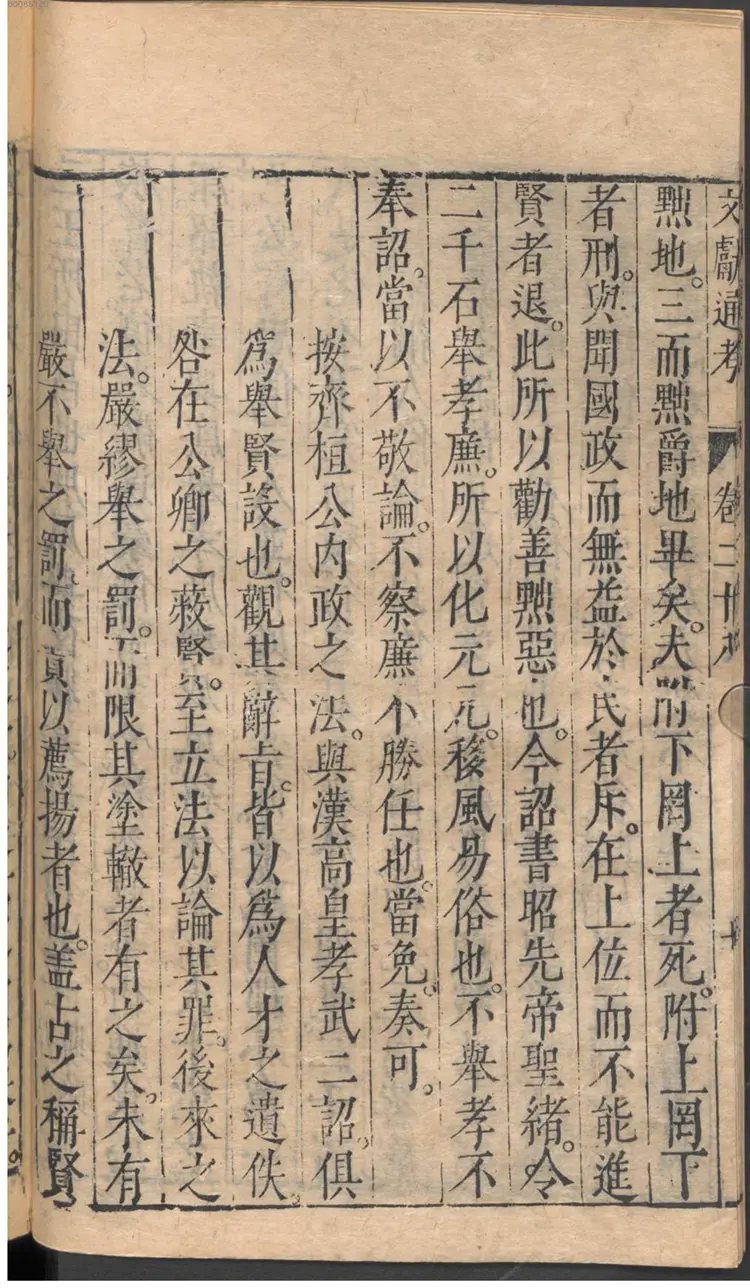 00085720
文獻通考 卷二十八
黜地。三而黜爵地畢矣。夫附下罔上者死。附上罔下
者刑。與聞國政而無益於民者斥。在上位而不能進
賢者退。此所以勸善黜惡也。今詔書昭先帝聖緒。令
二千石舉孝廉。所以化元元。移風易俗也。不舉孝不
奉詔。當以不敬論。不察廉不勝任也。當免。奏可。
按齊桓公內政之法。與漢高皇孝武二詔。俱
爲舉賢設也。觀其辭旨。皆以爲人才之遺佚。
咎在公卿之蔽賢。至立法以論其罪。後來之
法。嚴繆舉之罰。而限其塗轍者有之矣。未有
嚴不舉之罰。而責以薦揚者也。蓋古之稱賢